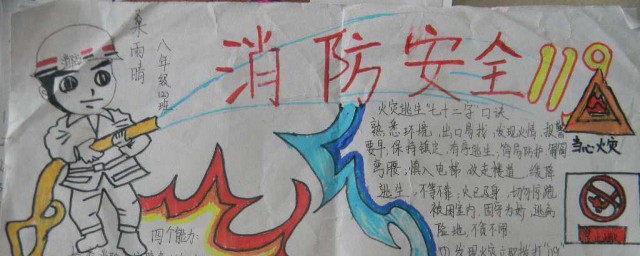 朱雨晴
八年级四班
消防安全119
火灾逃生"七十二字"口诀
熟悉环境，出口易找，发现火情，报警
要早，保持镇定，有序逃生，简易防护，匍匐
弯腰，慎入电梯，改走楼道，缓降
逃生，不等不靠，火已及身，切勿惊跑
被困室内，固守为妙，远离
险地，不贪不闹
当心火灾
四个能力：
四 发现火灾立即拨打"119"